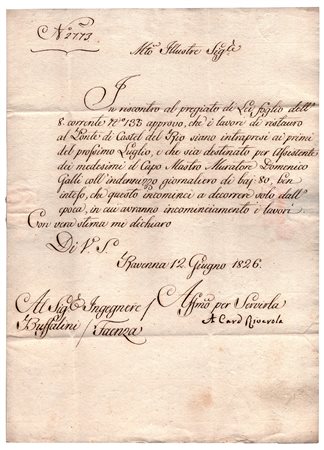 N.° 2773
Mto Illustre Sigre
In riscontro al pregiato di Lei foglio dell'
8. corrente N.° 138 approvo, che i lavori di restauro
al Ponte di Castel del Rio siano intrapresi ai primi
del prossimo Luglio, e che sia destinato per Assistente
dei medesimi il Capo Mastro Muratore Domenico
Galli coll'indennizzo giornaliero di baj: 80, ben
inteso, che questo incominci a decorrere solo dall'
epoca, in cui avranno incominciamento i lavori.
Con vera stima mi dichiaro
Di V. S.
Ravenna 12 Giugno 1826.
Al Sigr Ingegnere / Affmo per Servirla
Buffalini / Faenza A Card Rivarola